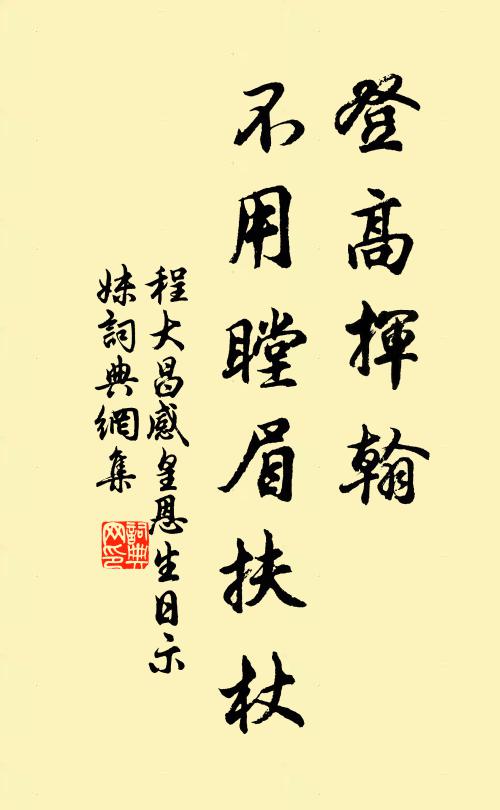 登高揮翰
不用瞠眉扶杖
程大昌感皇恩生日示
妹詞典網集
詞典
网印